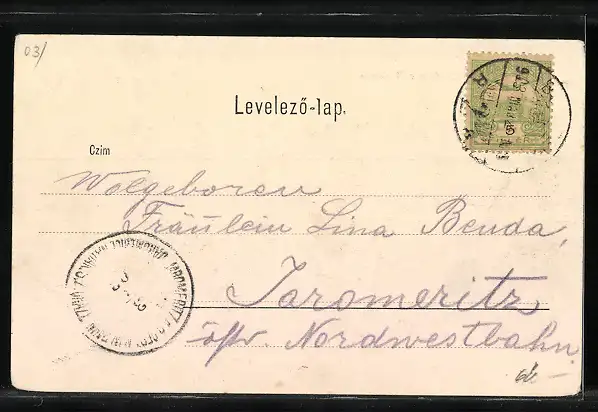 03/
Levelező-lap.
Czim
Wolgeboren
Fräulein Lina Benda,
Jaromeritz
öster. Nordwestbahn.
JAROMERITZ